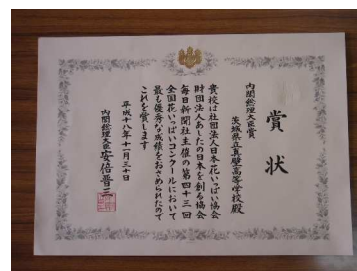 賞状
内閣総理大臣賞
茨城県立真壁高等学校殿
貴校は社団法人日本花いっぱい協会
財団法人あしたの日本を創る協会
毎日新聞社主催の第四十三回
全国花いっぱいコンクールにおいて
最も優秀な成績をおさめられたので
これを賞します
平成十八年十一月三十日
内閣総理大臣安倍晋三